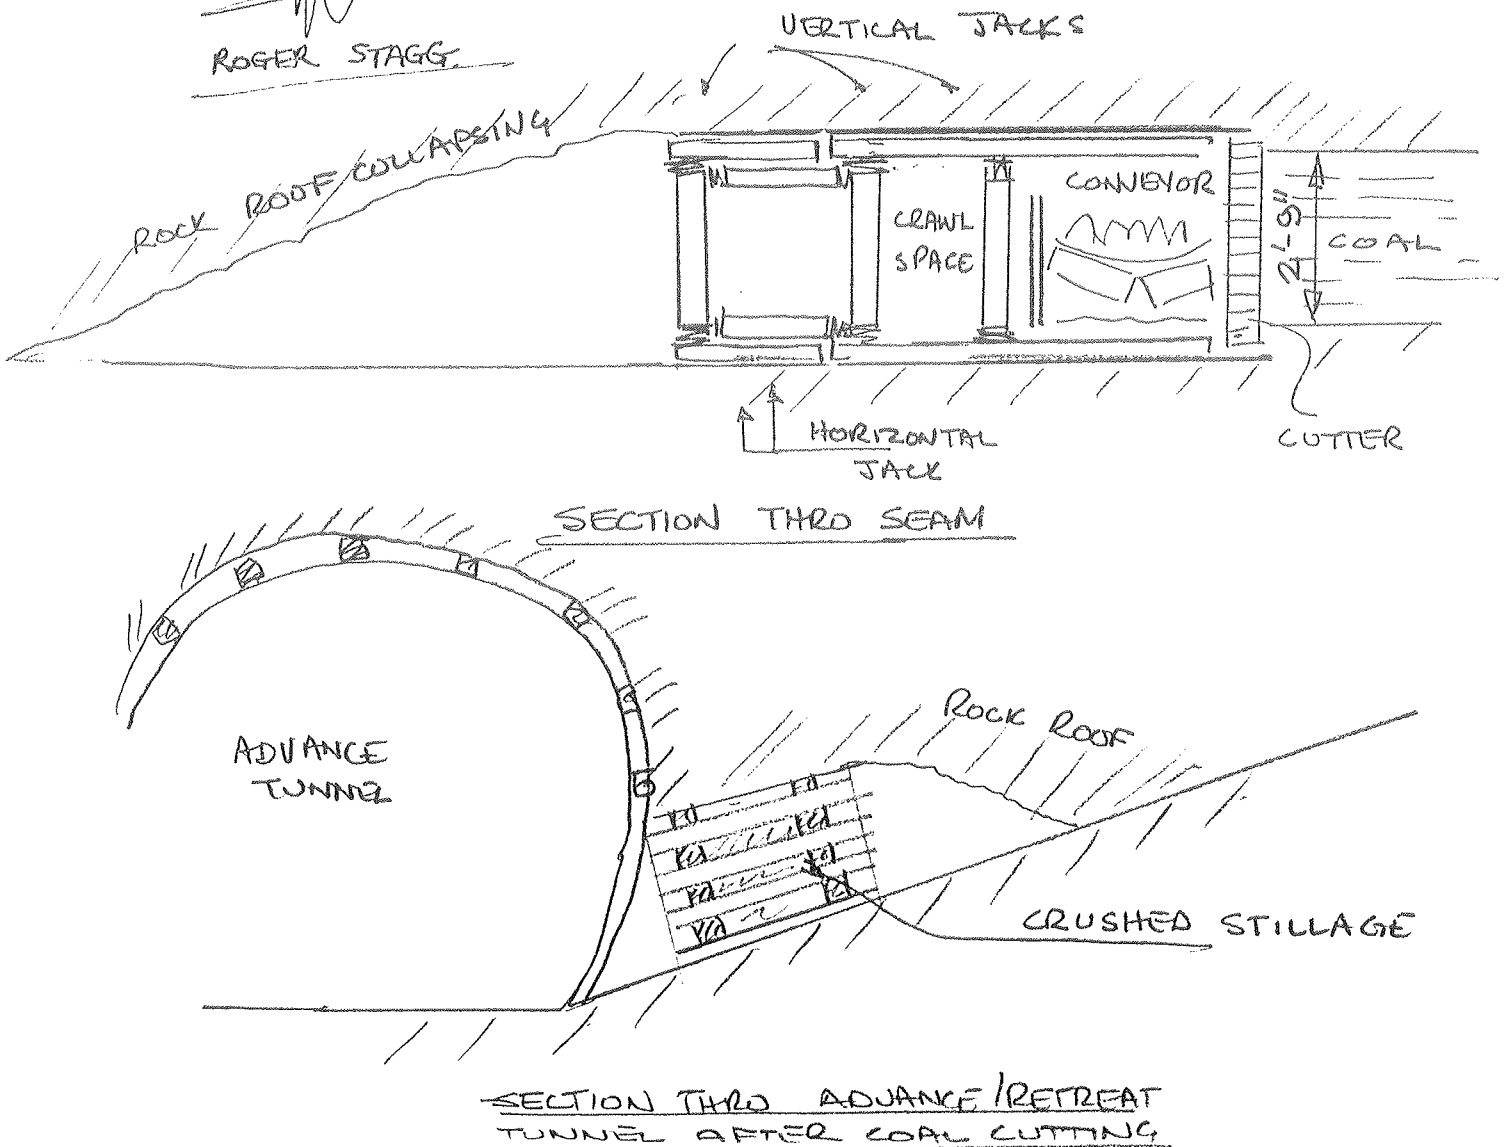 ROGER STAGG.
VERTICAL JACKS
ROCK ROOF COLLAPSING
CONVEYOR
CRAWL
SPACE
2'-9"
COAL
HORIZONTAL
JACK
CUTTER
SECTION THRO SEAM
ADVANCE
TUNNEL
ROCK ROOF
CRUSHED STILLAGE
SECTION THRO ADVANCE/RETREAT
TUNNEL AFTER COAL CUTTING